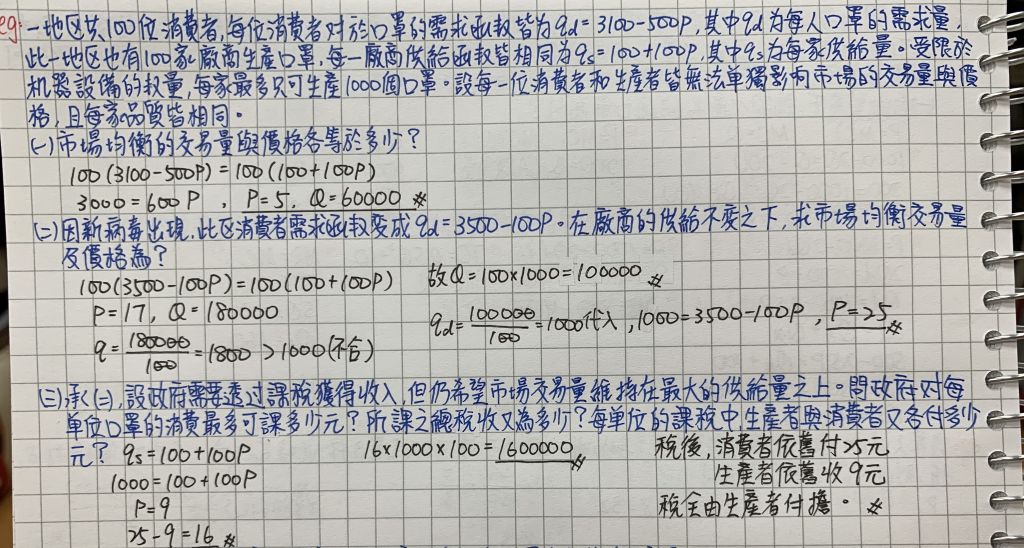 eg: 一地区共100位消費者,每位消費者對於口罩的需求函数皆为qd=3100-500P,其中qd为每人口罩的需求量,
此一地区也有100家廠商生產口罩,每一廠商供給函数皆相同为qs=100+100P,其中qs为每家供給量。受限於
机器設備的数量,每家最多只可生產1000個口罩。設每一位消費者和生產者皆無法单獨影响市場的交易量與價
格,且每家品質皆相同。
(一)市場均衡的交易量與價格各等於多少?
100(3100-500P)=100(100+100P)
3000=600P , P=5, Q=60000 #
(二)因新病毒出現,此区消費者需求函数变成qd=3500-100P。在廠商的供給不变之下,求市場均衡交易量
及價格為?
100(3500-100P)=100(100+100P) 故Q=100×1000=100000 #
P=17, Q=180000
qd=100000/100=1000代入,1000=3500-100P, P=25 #
q=180000/100=1800>1000(不合)
(三)承(二),設政府需要透过課稅獲得收入,但仍希望市場交易量維持在最大的供給量之上。問政府对每
單位口罩的消費最多可課多少元?所課之總稅收又為多少?每单位的課稅中生產者與消費者又各付多少
元? qs=100+100P 16×1000×100=1600000 # 稅後,消費者依舊付25元
1000=100+100P 生產者依舊收9元
P=9 稅全由生產者付擔。 #
25-9=16 #